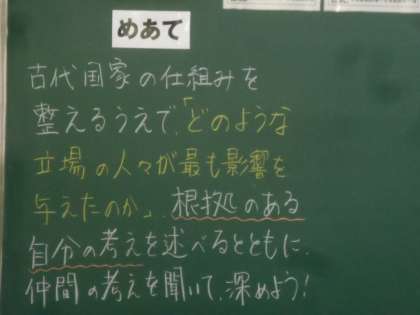 めあて
古代国家の仕組みを
整えるうえで、「どのような
立場の人々が最も影響を
与えたのか」、根拠のある
自分の考えを述べるとともに、
仲間の考えを聞いて、深めよう!